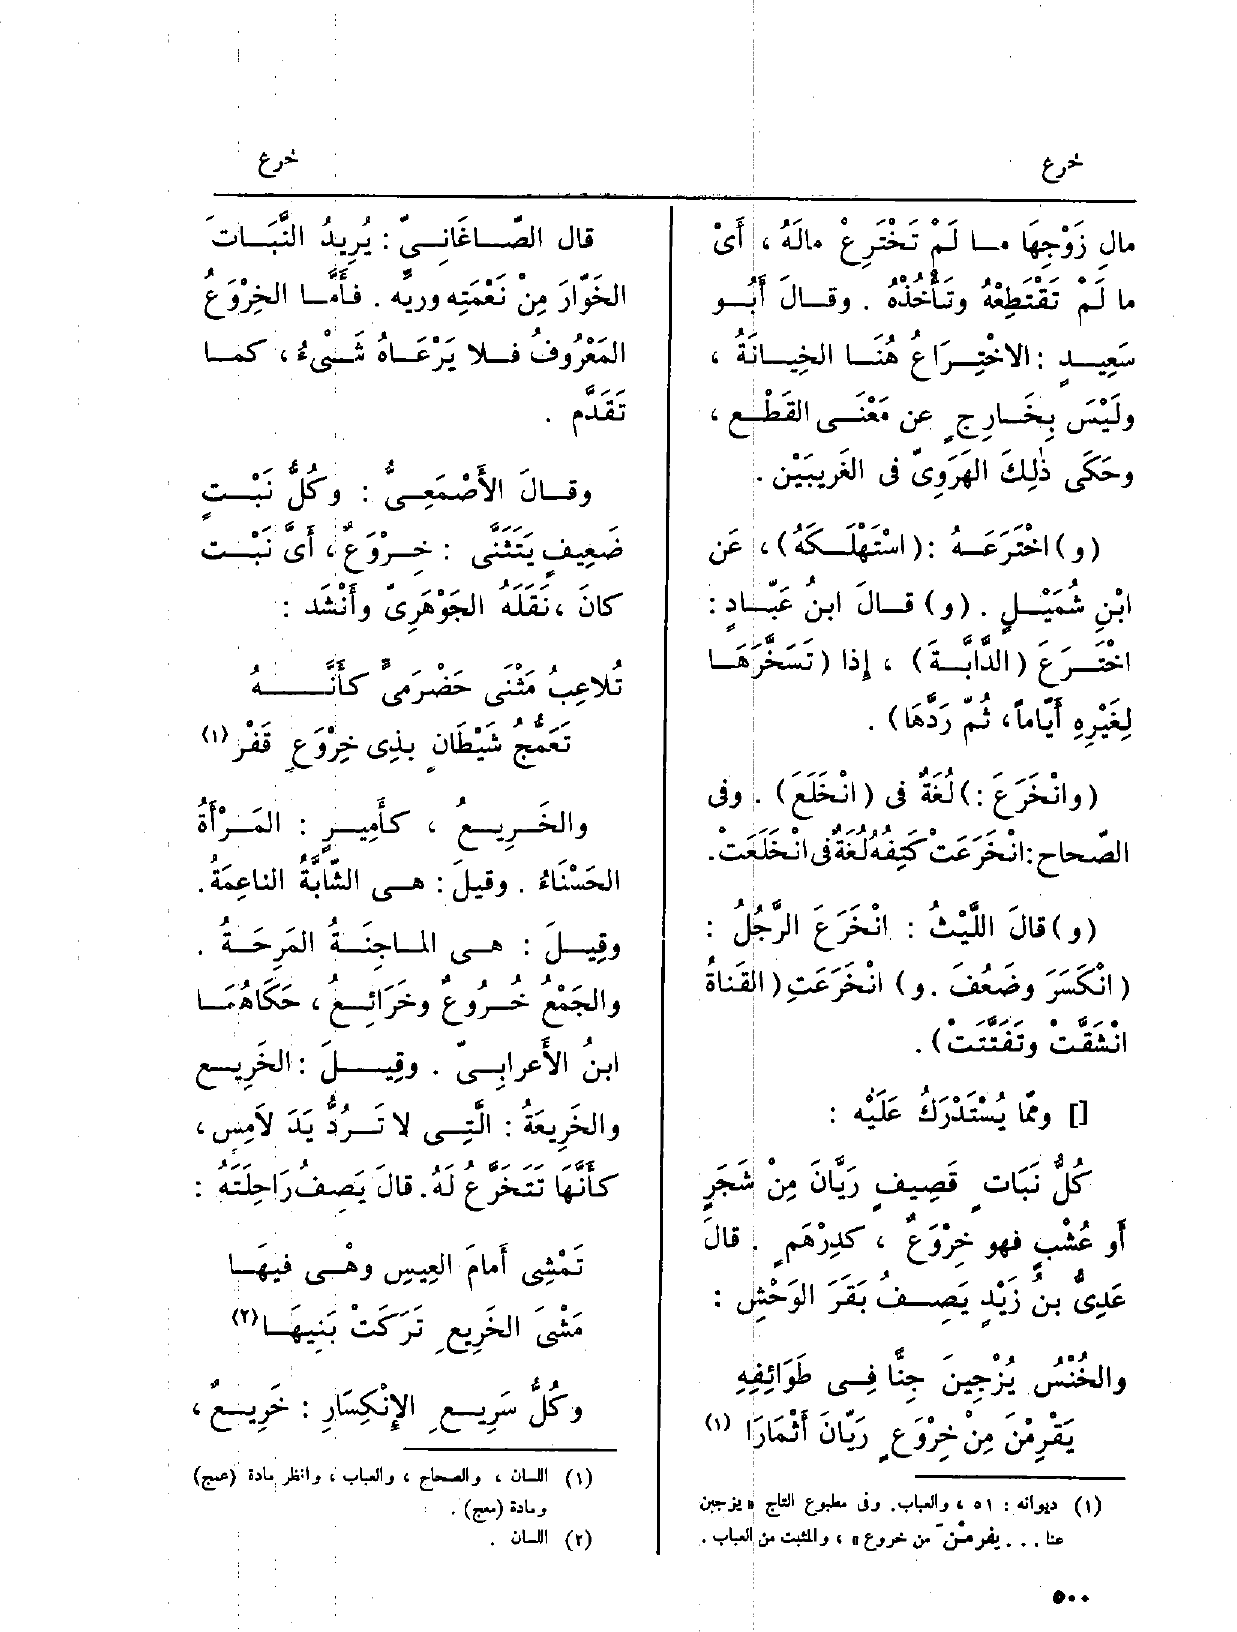 خرع
خرع
مال زَوْجِهَا ما لَمْ تَخْتَرِعْ مالَهُ ، أَىْ
ما لَمْ تَقْتَطِعْهُ وتَأْخُذْهُ . وقالَ أَبُو
سَعِيدٍ : الاخْتِرَاعُ هُنَا الخِيانَةُ ،
ولَيْسَ بِخَارِجٍ عن مَعْنَى القَطْعِ ،
وحَكَى ذٰلِكَ الهَرَوِىّ فى الغَرِيبَيْن .
(و) اخْتَرَعَهُ : (اسْتَهْلَكَهُ) ، عَن
ابْنِ شُمَيْلٍ . (و) قالَ ابنُ عَبّادٍ :
اخْتَرَعَ (الدَّابَّةَ) ، إذا (تَسَخَّرَهَا
لِغَيْرِهِ أَيّاماً ، ثُمّ رَدَّهَا) .
(وانْخَرَعَ :) لُغَةٌ فى (انْخَلَعَ) . وفى
الصّحاح: انْخَرَعَت كَتِفُهُ لُغَةٌ فى انْخَلَعَت.
(و) قالَ اللَّيْثُ : انْخَرَعَ الرَّجُلُ :
(انْكَسَرَ وضَعُفَ . و) انْخَرَعَتِ (القَناةُ
انْشَقَّتْ وتَفَتَّتَتْ) .
[] ومّا يُسْتَدْرَكُ عَلَيْه :
كُلُّ نَبَاتٍ قَصِيفٍ رَيَّانَ مِنْ شَجَرٍ
أو عُشْبٍ فهو خِرْوَعٌ ، كدِرْهَمٍ . قالَ
عَدِىُّ بنُ زَيْدٍ يَصِفُ بَقَرَ الوَحْشِ :
والخُنْسُ يُزْجِينَ جِنًّا فِى طَوَائِفِهِ
يَقْرِمْنَ مِن خِرْوَعٍ رَيّانَ أَثْمَارَا (١)
(١) ديوانه : ٥١ ، والعباب. وفى مطبوع التاج « يزجين
عنا ... يفرمْنَ من خروع » ، والمثبت من العباب .
قال الصَّاغَانِىّ : يُرِيدُ النَّبَاتَ
الخَوّارَ مِنْ نَعْمَتِه ورِيِّه . فأَمَّا الخِرْوَعُ
المَعْرُوفُ فلا يَرْعَاهُ شَىْءٌ ، كما
تَقَدَّم .
وقالَ الأَصْمَعِىُّ : وكُلُّ نَبْتٍ
ضَعِيفٍ يَتَثَنَّى : خِرْوَعٌ ، أَىَّ نَبْت
كانَ ، نَقَلَهُ الجَوْهَرِىّ وأَنْشَد :
تُلاعِبُ مَثْنَى حَضْرَمِىٍّ كأَنَّهُ
تَعَمُّجُ شَيْطَانٍ بذِى خِرْوَعٍ قَفْرِ (١)
والخَرِيعُ ، كأَمِيرٍ : المَرْأَةُ
الحَسْناءُ . وقيلَ : هى الشّابَّةُ الناعِمَةُ .
وقِيلَ : هى الماجِنَةُ المَرِحَةُ .
والجَمْعُ خُرُوعٌ وخَرَائعُ ، حَكَاهُمَا
ابنُ الأَعرابِىّ . وقِيلَ : الخَرِيع
والخَرِيعَةُ : الَّتِى لا تَرُدُّ يَدَ لَامِسٍ ،
كأَنَّهَا تَتَخَرَّعُ لَهُ. قالَ يَصِفُ رَاحِلَتَهُ :
تَمْشِى أَمَامَ العِيسِ وهْى فيهَا
مَشْىَ الخَرِيعِ تَرَكَتْ بَنِيهَا (٢)
وكُلُّ سَرِيعِ الإِنْكِسَارِ : خَرِيعٌ ،
(١) اللسان ، والصحاح ، والعباب ، وانظر مادة (عمج)
ومادة (معج) .
(٢) اللسان .
٥٠٠